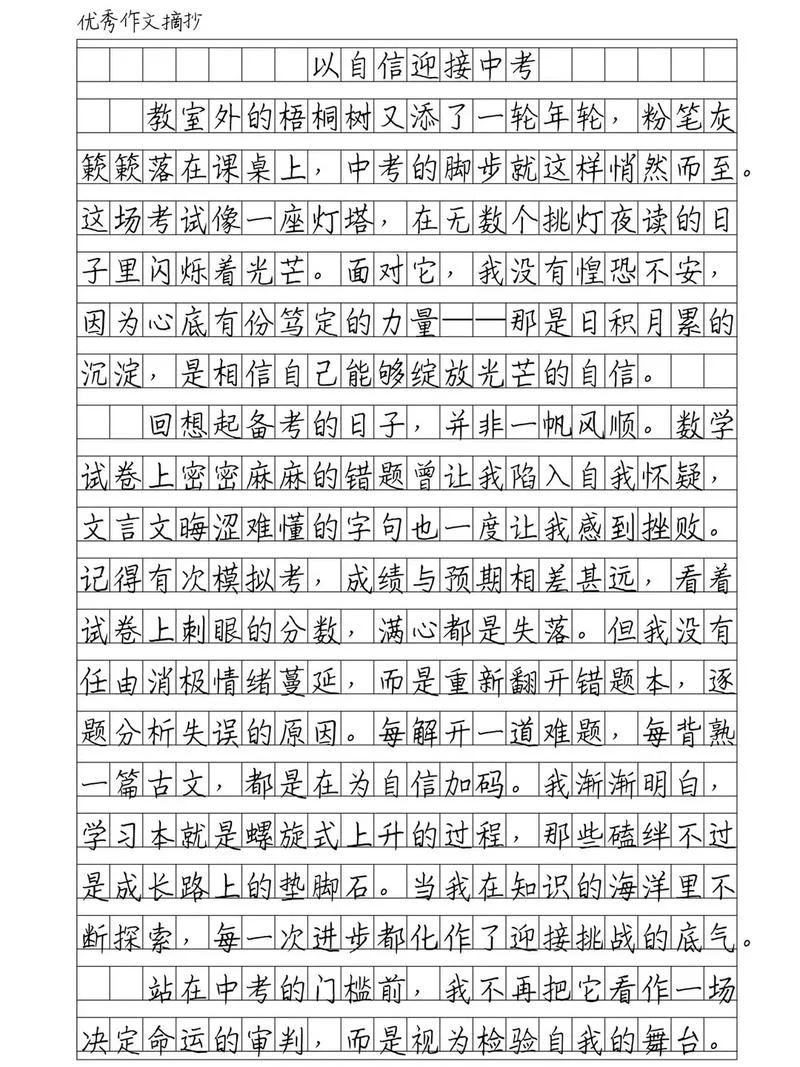 优秀作文摘抄
以自信迎接中考
教室外的梧桐树又添了一轮年轮，粉笔灰
簌簌落在课桌上，中考的脚步就这样悄然而至。
这场考试像一座灯塔，在无数个挑灯夜读的日
子里闪烁着光芒。面对它，我没有惶恐不安，
因为心底有份笃定的力量——那是日积月累的
沉淀，是相信自己能够绽放光芒的自信。
回想起备考的日子，并非一帆风顺。数学
试卷上密密麻麻的错题曾让我陷入自我怀疑，
文言文晦涩难懂的字句也一度让我感到挫败。
记得有次模拟考，成绩与预期相差甚远，看着
试卷上刺眼的分数，满心都是失落。但我没有
任由消极情绪蔓延，而是重新翻开错题本，逐
题分析失误的原因。每解开一道难题，每背熟
一篇古文，都是在为自信加码。我渐渐明白，
学习本就是螺旋式上升的过程，那些磕绊不过
是成长路上的垫脚石。当我在知识的海洋里不
断探索，每一次进步都化作了迎接挑战的底气。
站在中考的门槛前，我不再把它看作一场
决定命运的审判，而是视为检验自我的舞台。